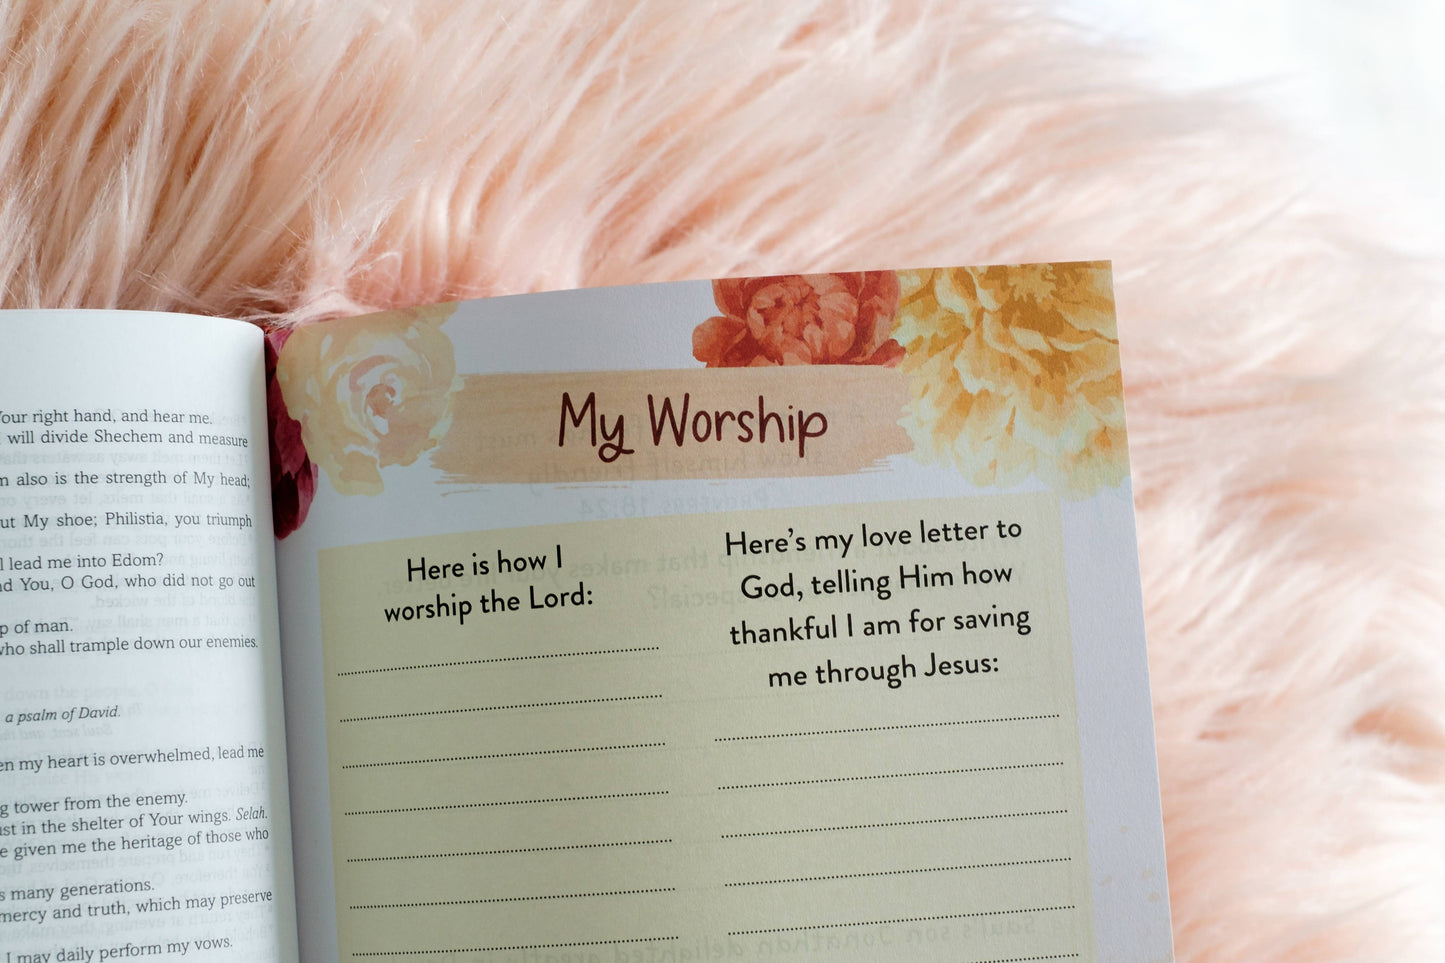 Your right hand, and hear me.
will divide Shechem and measure
also is the strength of My head;
My shoe; Philistia, you triumph
lead me into Edom?
You, O God, who did not go out
of man.
who shall trample down our enemies.
a psalm of David.
my heart is overwhelmed, lead me
tower from the enemy.
in the shelter of Your wings. Selah.
given me the heritage of those who
many generations.
mercy and truth, which may preserve
I may daily perform my vows.
My Worship
Here is how I
worship the Lord:
Here's my love letter to
God, telling Him how
thankful I am for saving
me through Jesus: